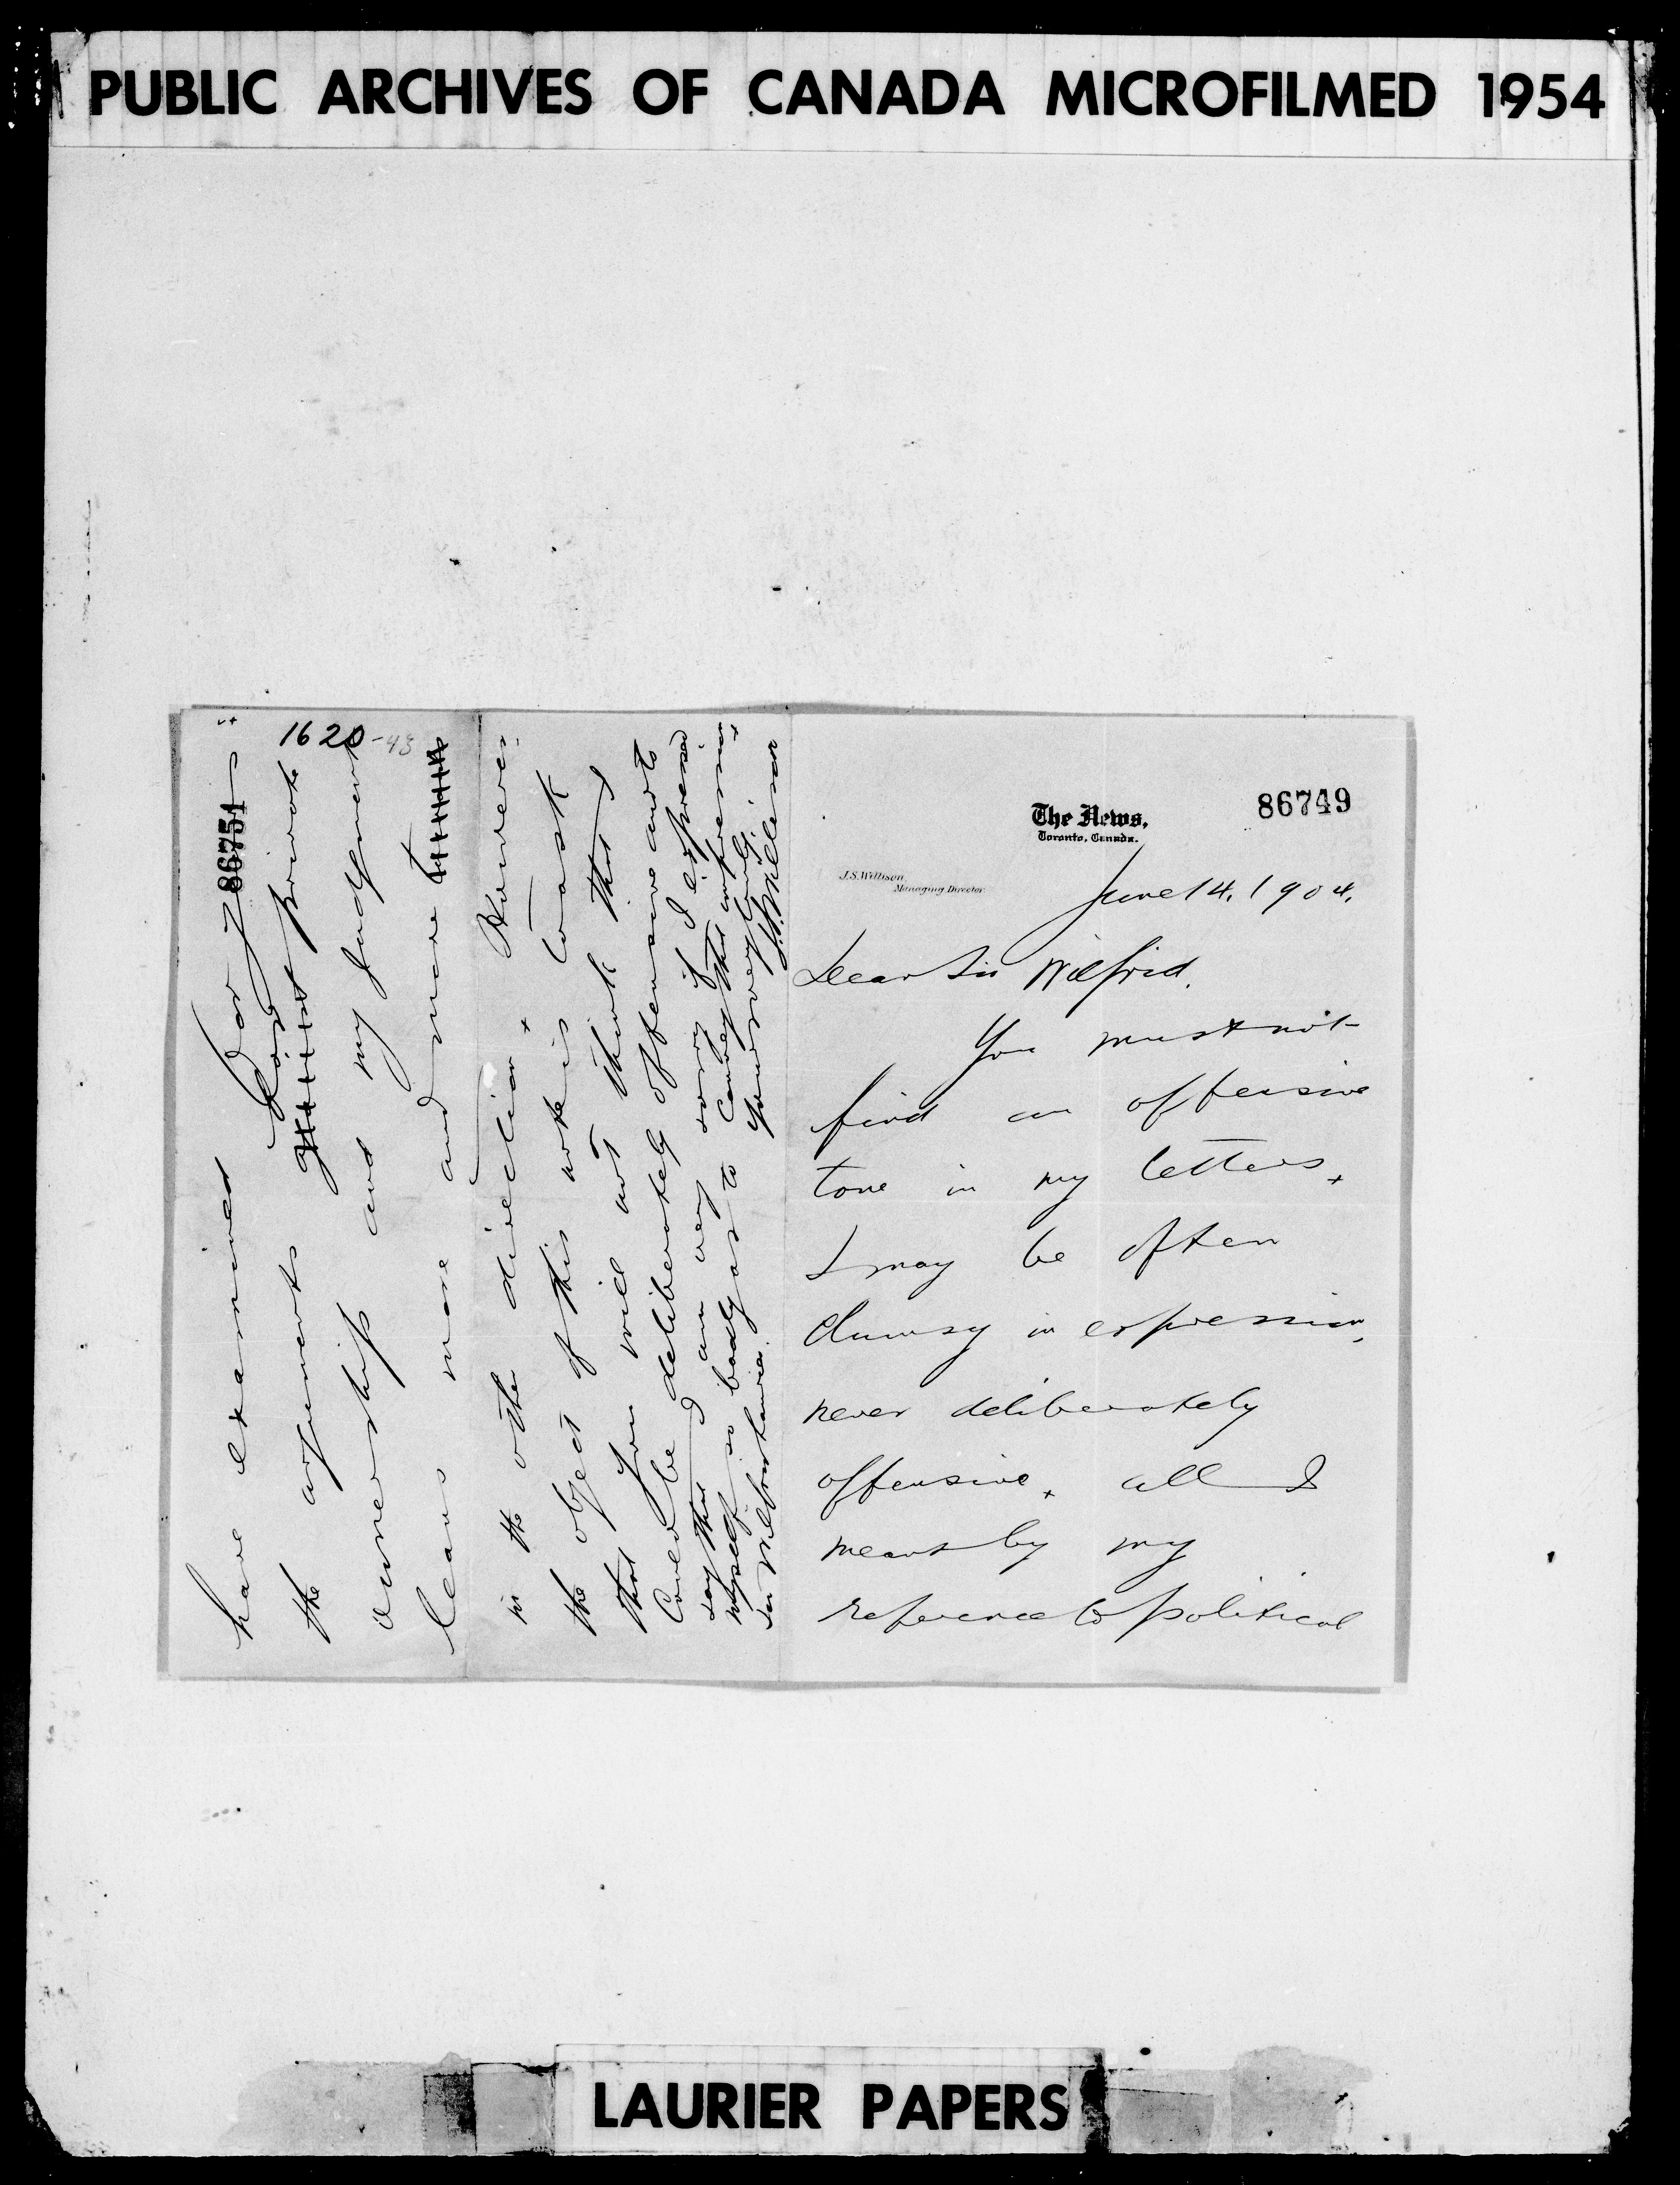 PUBLIC ARCHIVES OF CANADA MICROFILMED 1954
86749
The News,
Toronto, Canada.
J.S. Willison,
Managing Director.
June 14, 1904.
Dear Sir Wilfrid.
You must not
find an offensive
tone in my letters.
I may be often
clumsy in expression,
never deliberately
offensive. All I
meant by my
reference to political
1620-43
86751
have examined
the arguments for private
ownership and my judgment
leans more and more
in the other direction. However,
the object of this note is to ask
that you will not think that I
could be deliberately offensive and to
say that I am very sorry if I expressed
myself so badly as to convey that impression.
Yours very truly,
J.S. Willison
Sir Wilfrid Laurier.
LAURIER PAPERS